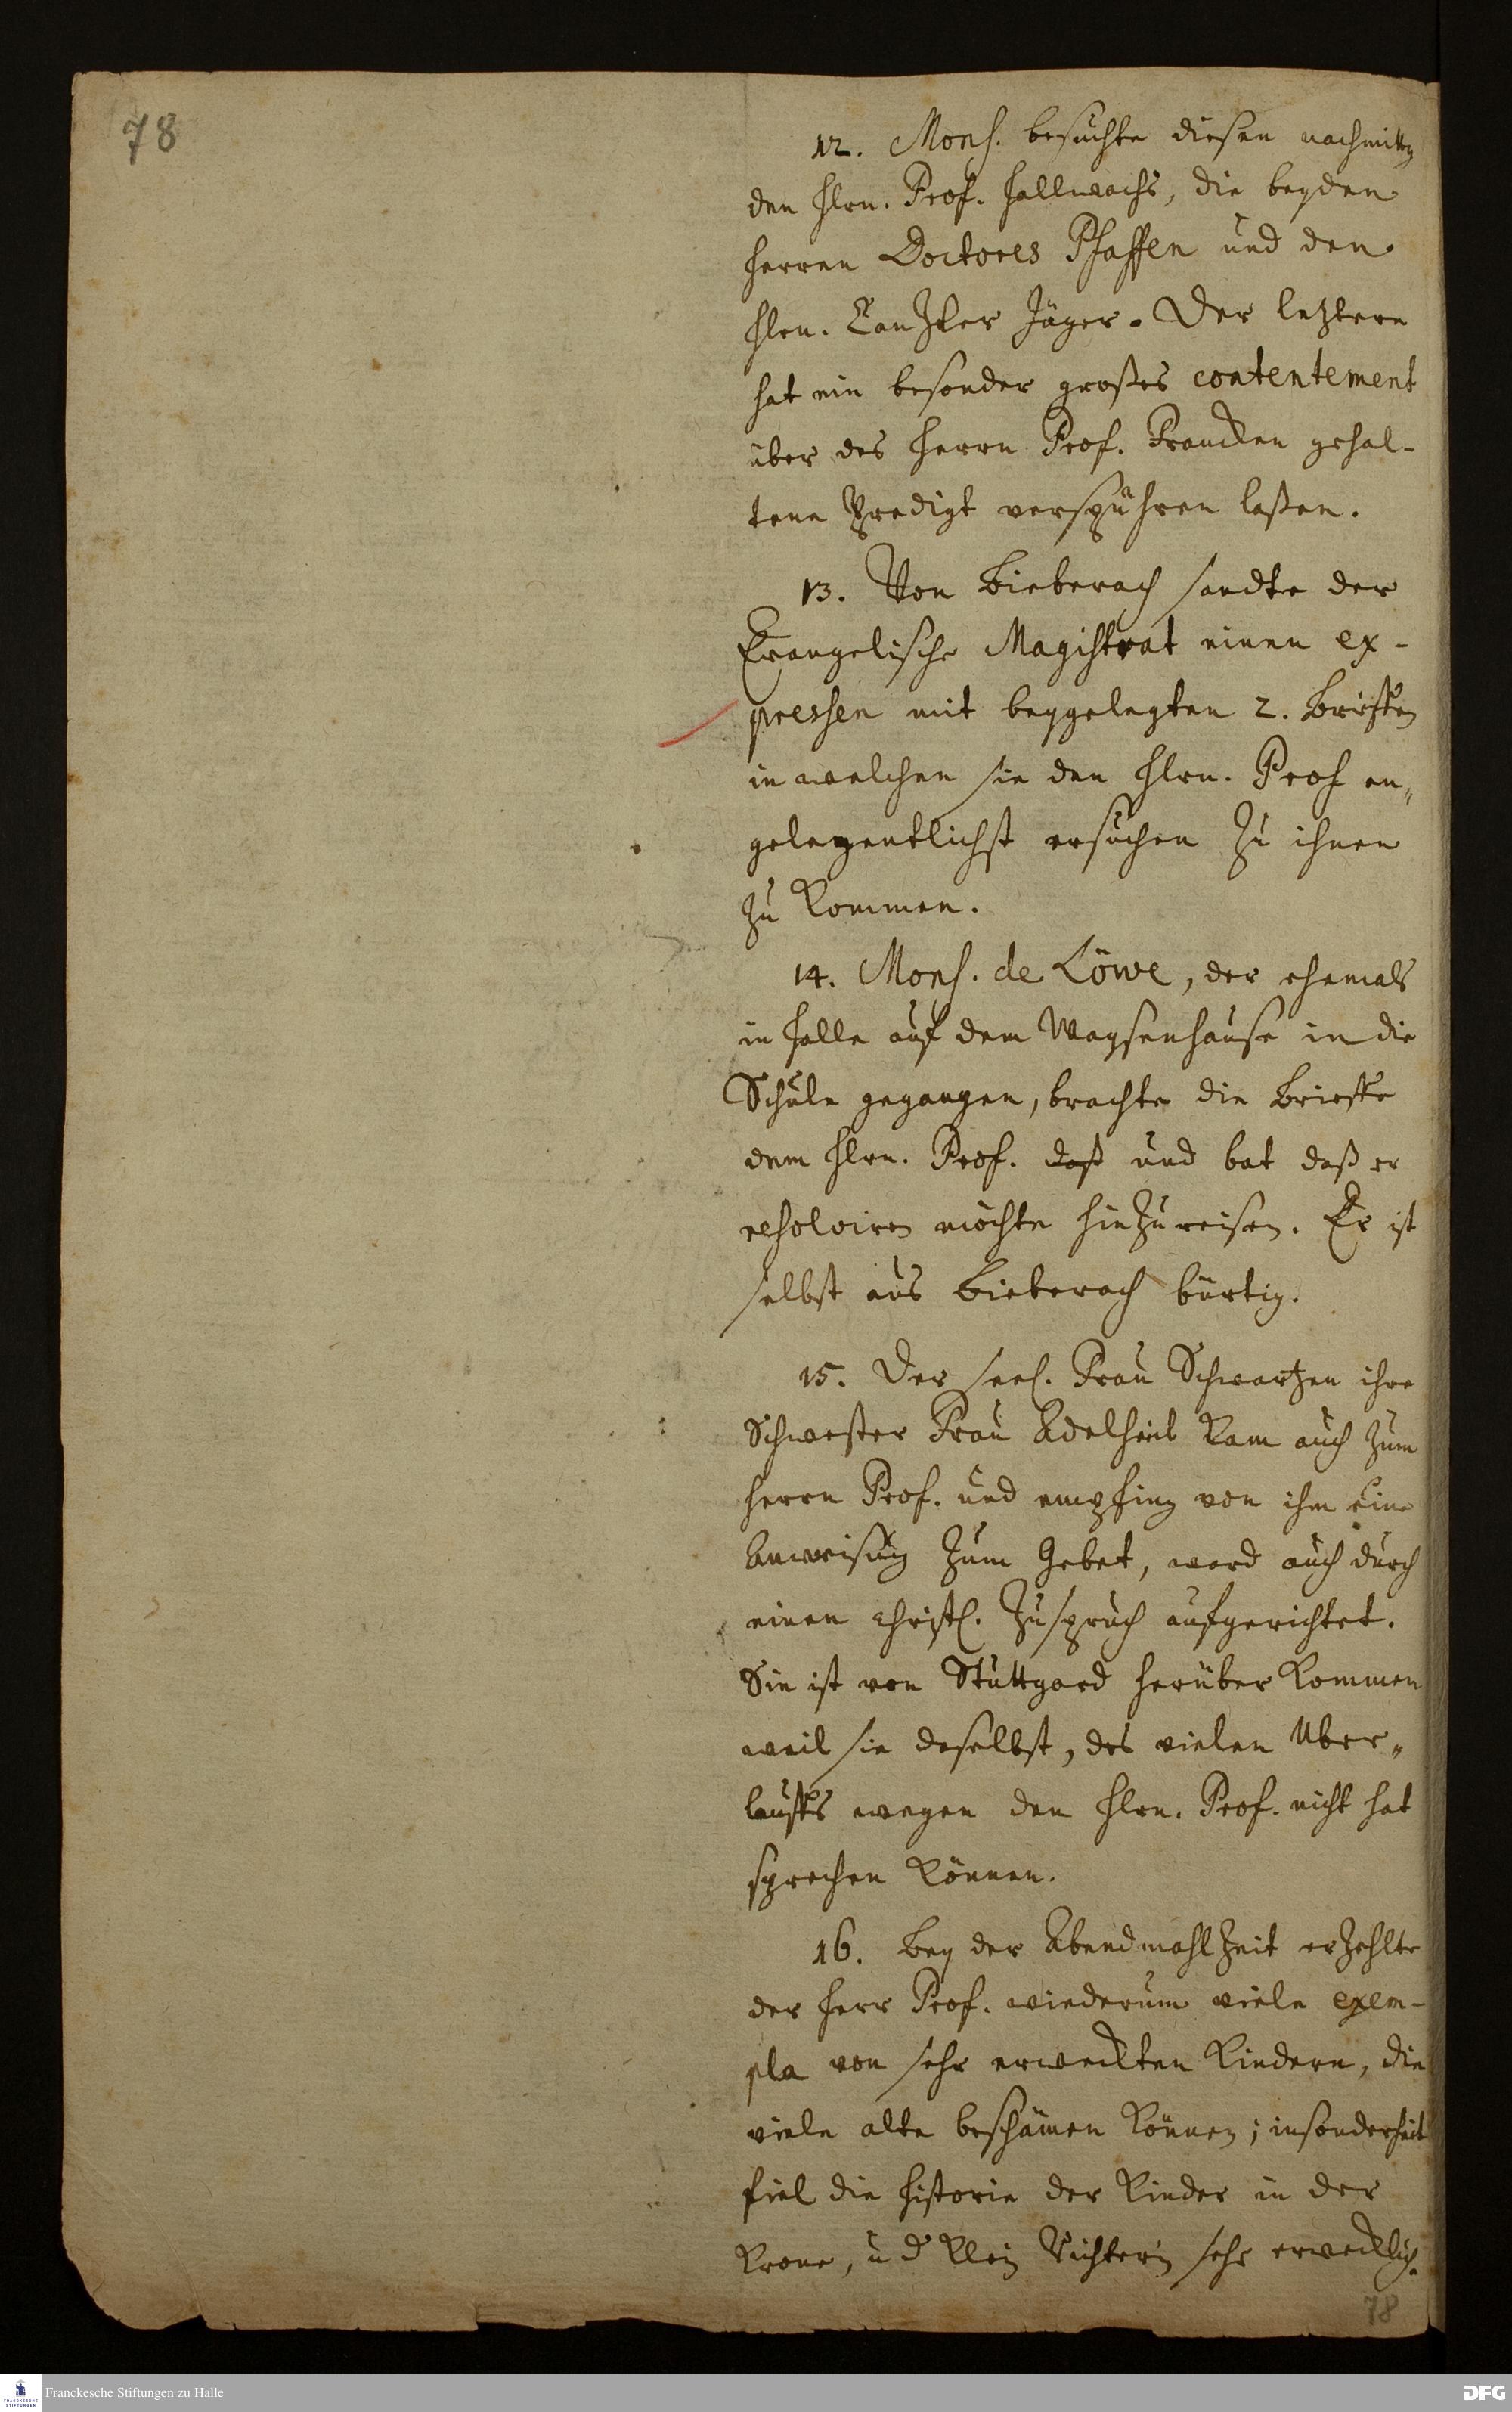 78
12. Mons. besuchte diesen nachmittg
den Hlrn. Prof. Hallwachs, die beyden
Herren Doctores Pfaffen und den
Hlrn. Cantzler Jäger. Der letztere
hat ein besonder großes contentement
über des Herrn Prof. Francken gehal-
tene Predigt verspühren laßen.
13. Von Bieberach sandte der
Evangelische Magistrat einen ex-
pressen mit beygelegten 2. Brieffen
in welchen sie den Hlrn. Prof an„
gelegentlichst ersuchen zu ihnen
zu kommen.
14. Mons. de Löwe, der ehemals
in Halle auf dem Waysenhause in die
Schule gegangen, brachte die Brieffe
dem Hlrn. Prof. daß und bat daß er
resolviren möchte hinzureisen. Er ist
selbst aus Bieberach bürtig.
15. Der seel. Frau Schwartzen ihre
Schwester Frau Adelheit kam auch zum
Herrn Prof. und empfing von ihm eine
Anweisung zum Gebet, ward auch durch
einen christl. Zuspruch aufgerichtet.
Sie ist von Stuttgard herüber kommen
weil sie daselbst, des vielen Uber„
lauffs wegen den Hlrn. Prof. nicht hat
sprechen können.
16. Bey der Abendmahlzeit erzehlte
der Herr Prof. wiederum viele exem-
pla von sehr erweckten Kindern, die
viele alte beschämen können; insonderheit
fiel die Historie der Kinder in der
Krone, u d klein Richterin sehr erwecklich.
78
Franckesche Stiftungen zu Halle
DFG